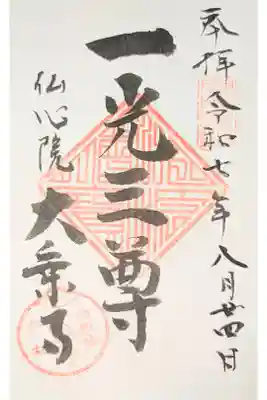 奉拝 令和七年八月廿四日
一光三尊
仙心院
大乗寺